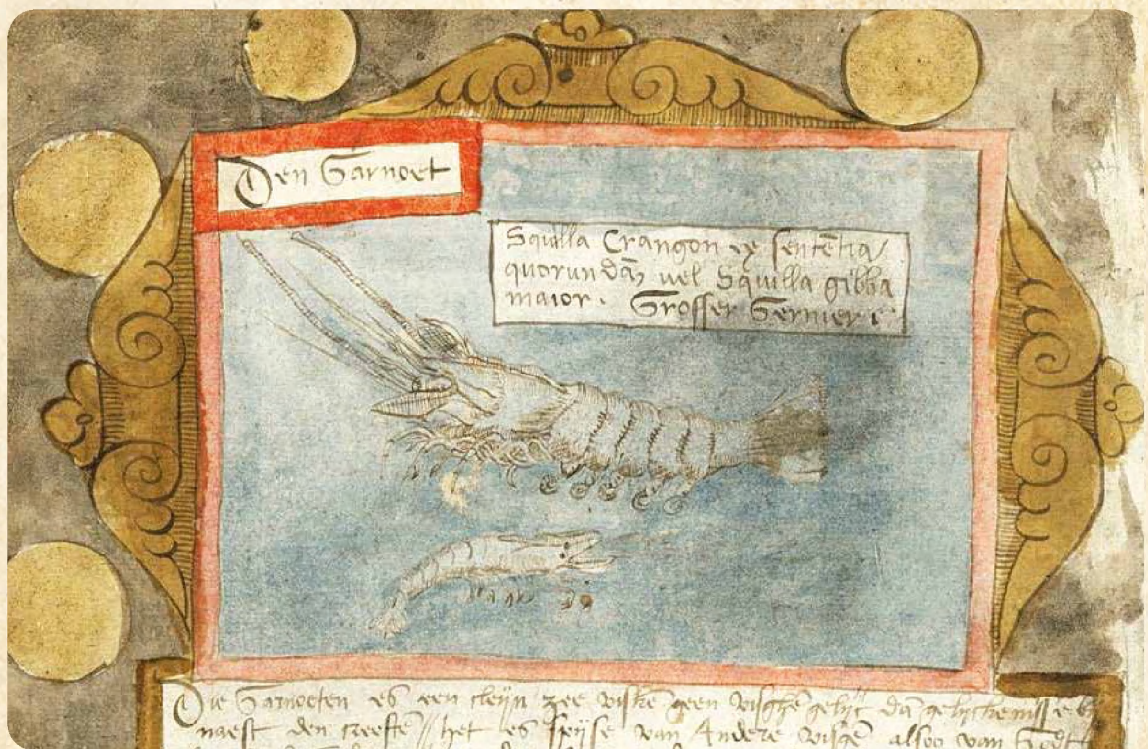 Den Garnoet
Squilla Crangon ex sentētia
quorundā vel Squilla gibba
maior. Grosser Gernier
Die Garnoeten es een cleijn zee viskē geen visghē gelijc dā gelijckenisse
naest den creeftē het es spijse van Andere visgē alsoo van